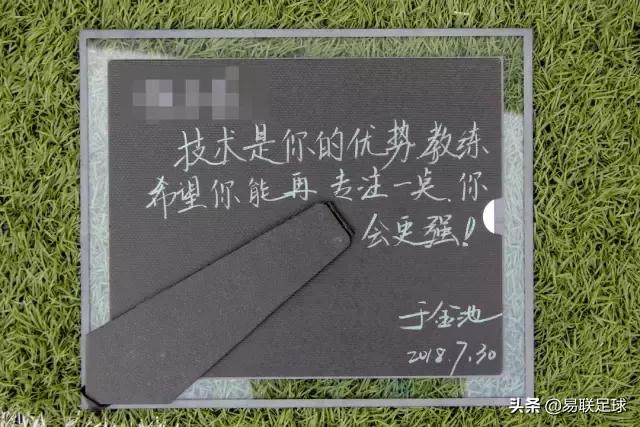 技术是你的优势教练
希望你能再专注一点、你
会更强!
于金池
2018.7.30
头条@易联足球